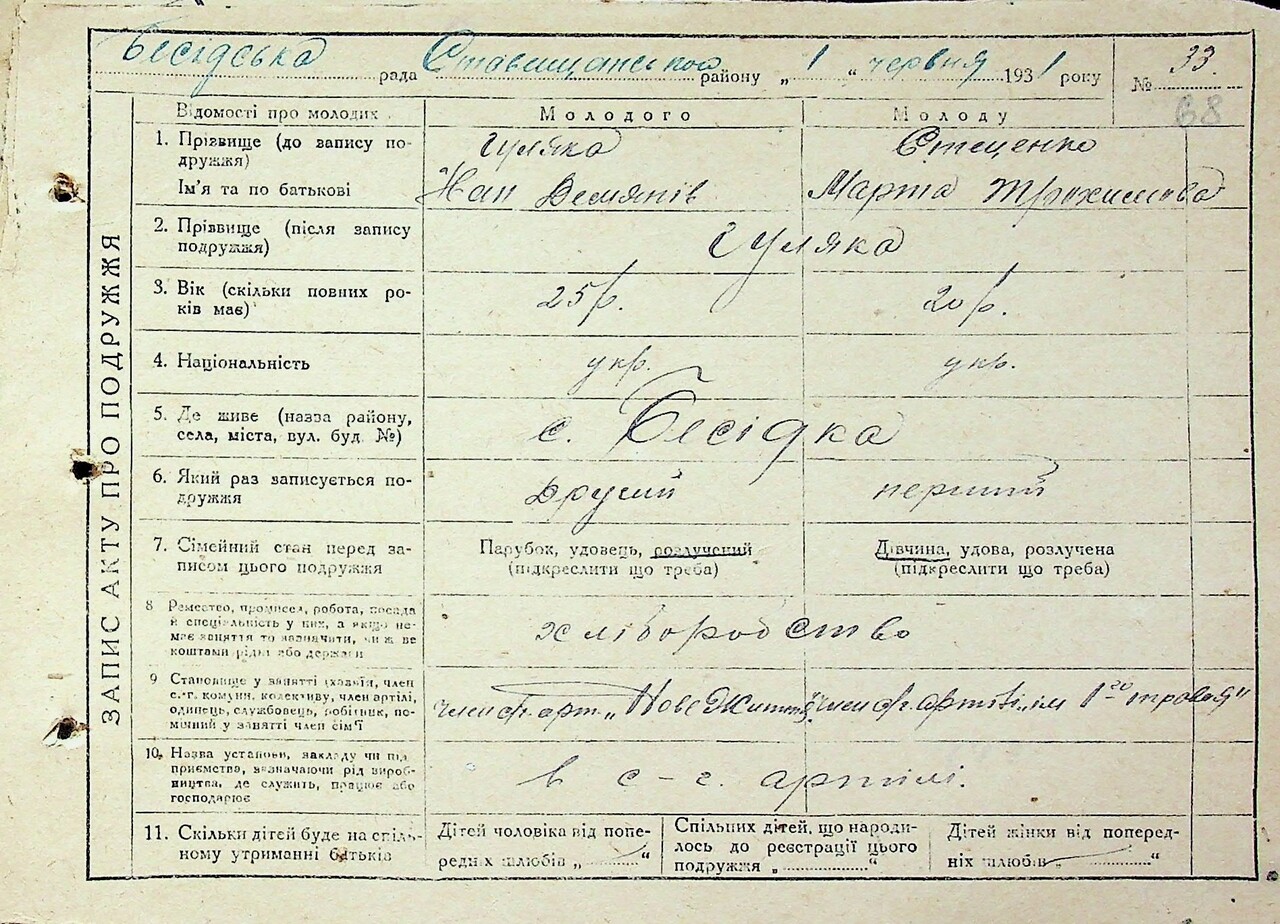 Бесідська рада Ставищанського району „ 1 “ червня 1931 року № 33.
68
ЗАПИС АКТУ ПРО ПОДРУЖЖЯ
Відомості про молодих Молодого Молоду
1. Прізвище (до запису по-
дружжя) Гуляка Стеценко
Ім'я та по батькові Демянів Марта Трохимова
2. Прізвище (після запису
подружжя) Гуляка
3. Вік (скільки повних ро-
ків має) 25 р. 20 р.
4. Національність укр. укр.
5. Де живе (назва району,
села, міста, вул. буд. №) с. Бесідка
6. Який раз записується по-
дружжя другий перший
7. Сімейний стан перед за-
писом цього подружжя
Парубок, удовець, розлучений
(підкреслити що треба)
Дівчина, удова, розлучена
(підкреслити що треба)
8 Ремество, промисел, робота, посада
й спеціяльність у них, а якщо не-
має заняття то зазначити, чиїж ве
коштами рідні або держави
хліборобство
9 Становище у занятті (хазяїн, член
с.-г. комуни, колективу, член артілі,
одинець, службовець, робітник, по-
мічний у занятті член сім'ї
член арт. „Нове Життя" член артілі ім 1го травня"
10. Назва установи, закладу чи під
приємства, зазначаючи рід вироб-
ництва, де служить, працює або
господарює
в с-г. артілі.
11. Скільки дітей буде на спіль-
ному утриманні батьків
Дітей чоловіка від попе-
редніх шлюбів „ “
Спільних дітей, що народи-
лось до реєстрації цього
подружжя „ “
Дітей жінки від поперед-
ніх шлюбів “